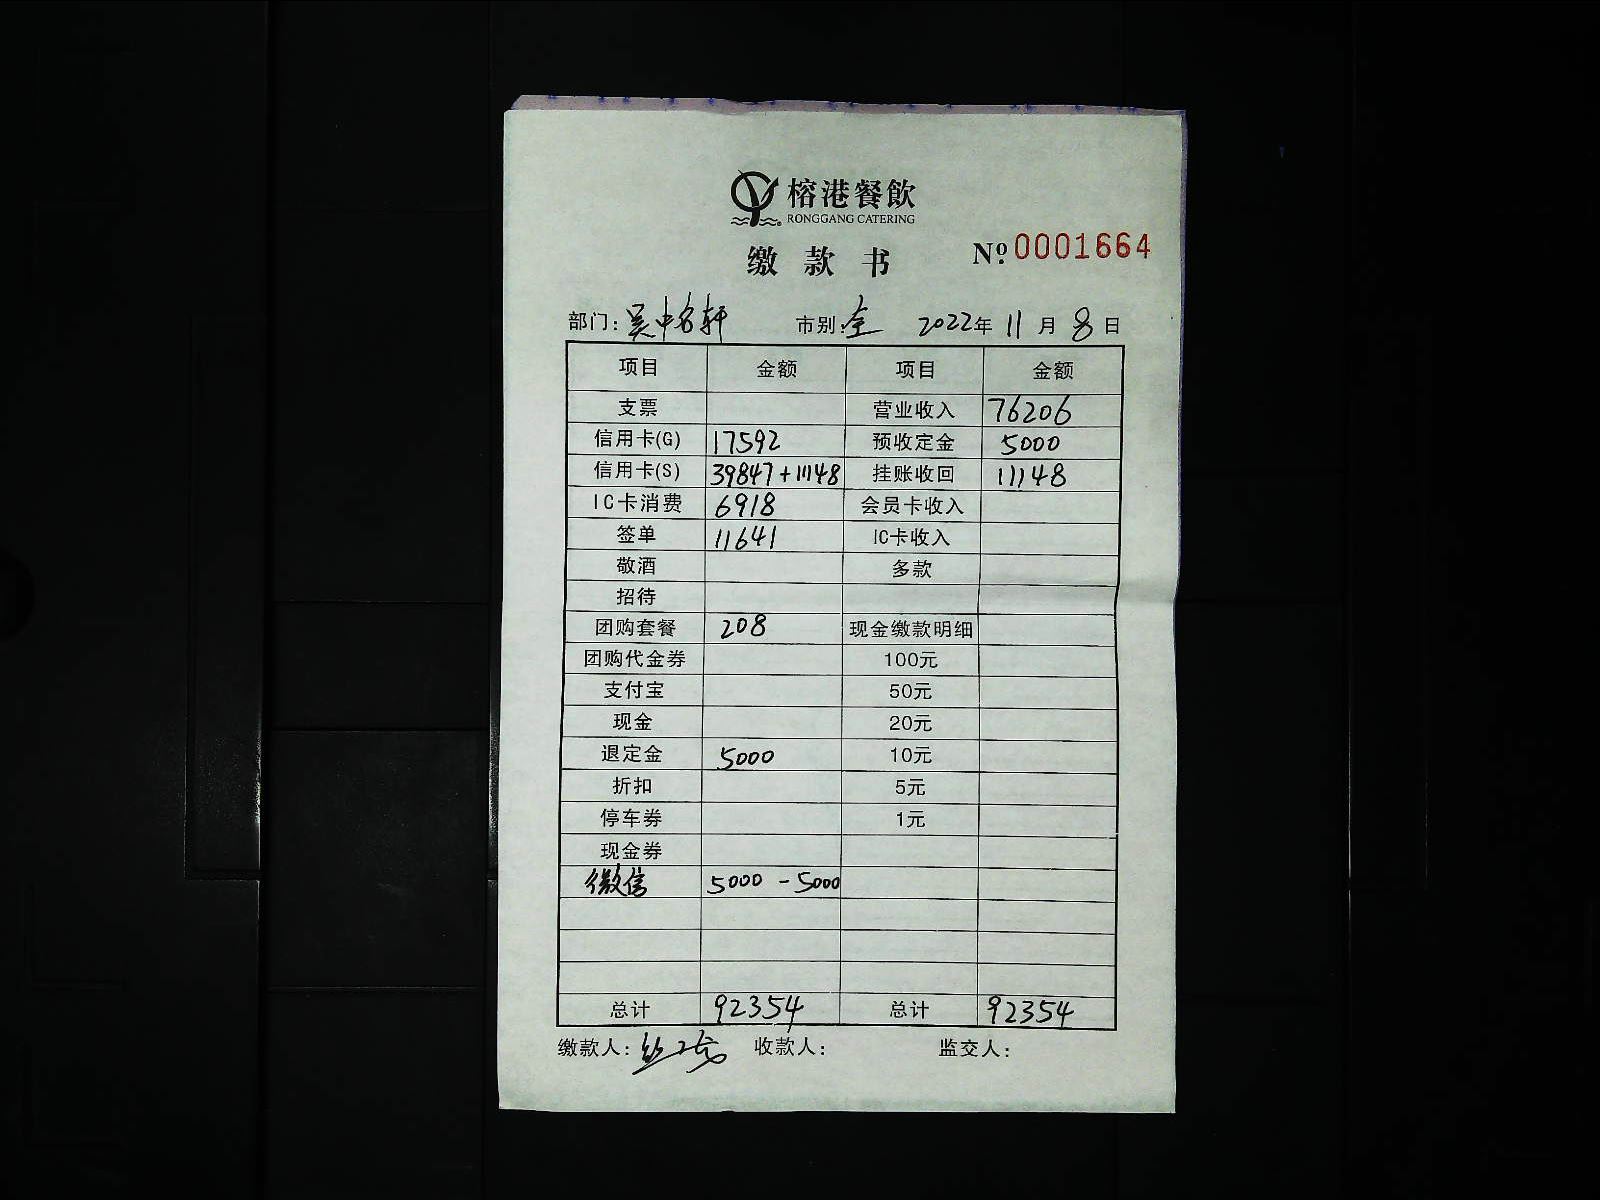 榕港餐飲
RONGGANG CATERING
缴款书 Nº 0001664
部门：吴中名轩 市别：全 2022年11月8日
项目 金额 项目 金额
支票 营业收入 76206
信用卡(G) 17592 预收定金 5000
信用卡(S) 39847+11148 挂账收回 11148
IC卡消费 6918 会员卡收入
签单 11641 IC卡收入
敬酒 多款
招待
团购套餐 208 现金缴款明细
团购代金券 100元
支付宝 50元
现金 20元
退定金 5000 10元
折扣 5元
停车券 1元
现金券
微信 5000 -5000
总计 92354 总计 92354
缴款人： 收款人： 监交人：